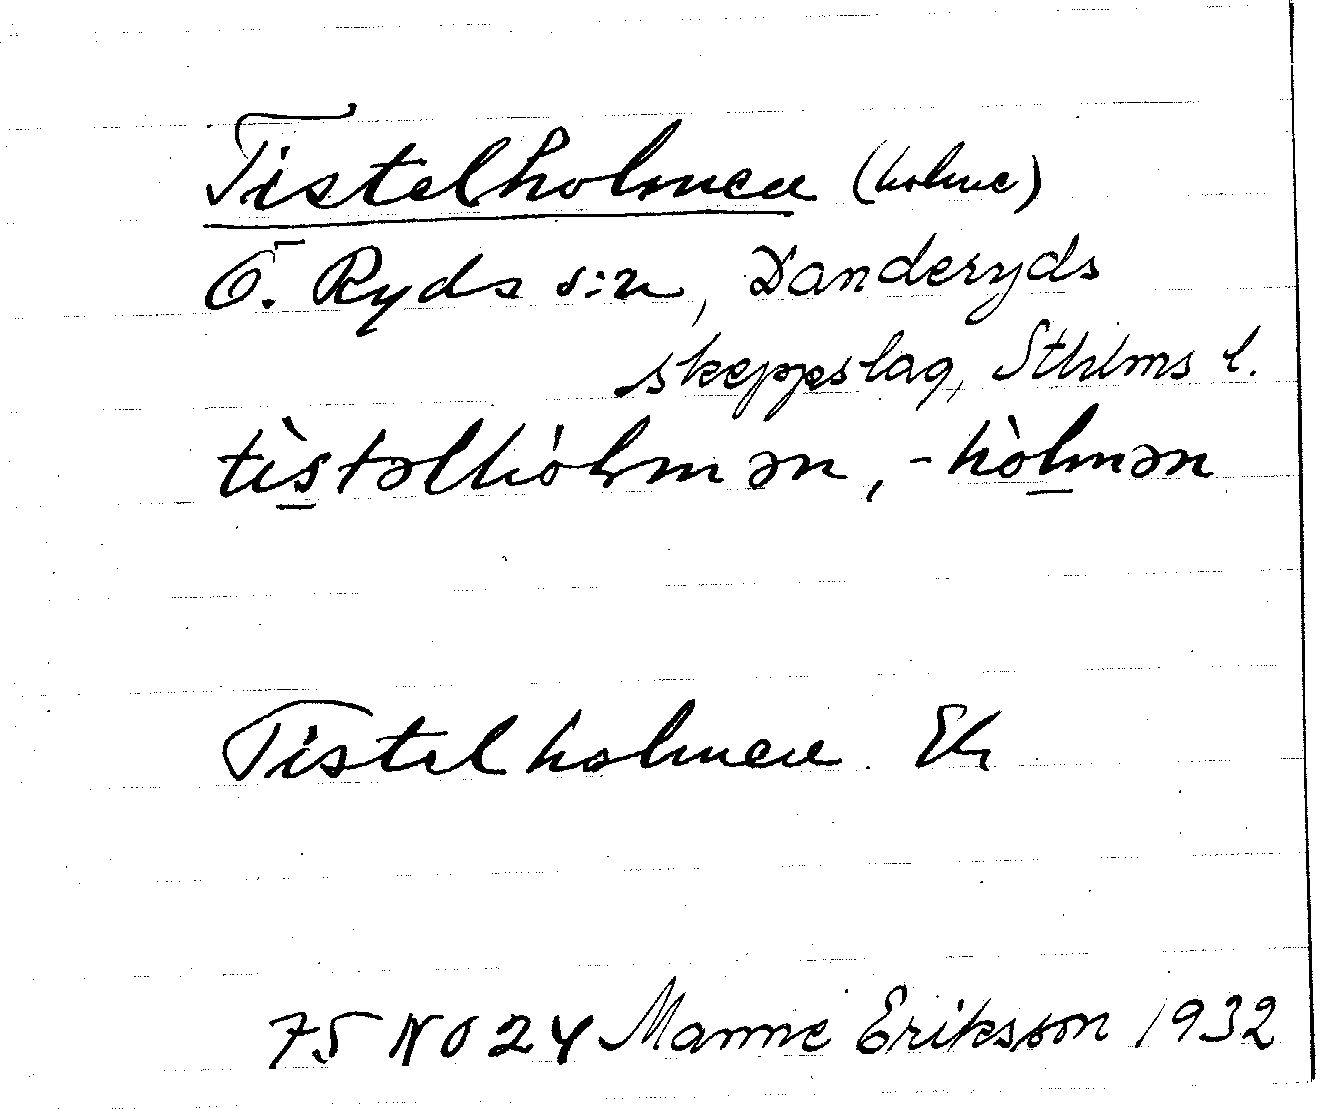 Tistelholmen (holme)
Ö. Ryds s:n, Danderyds
skeppslag, Sthlms l.
tìstəlhólmən, -hòlmən
Tistelholmen Ek
75 NO 24 Manne Eriksson 1932